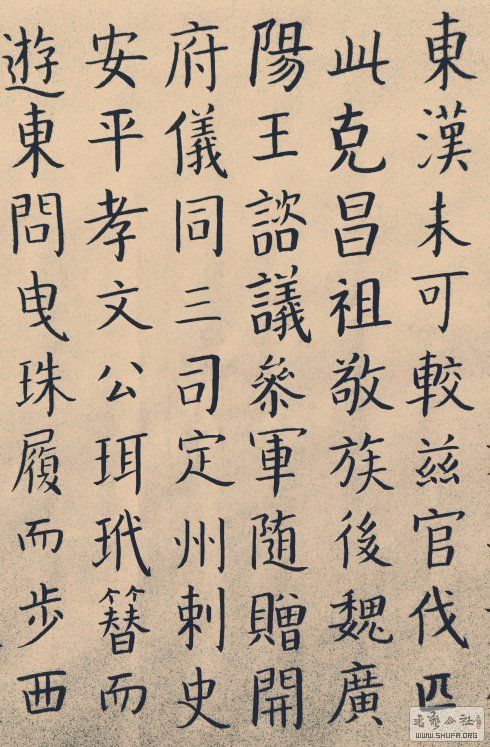 東漢未可較茲官伐匹
此克昌祖敬族後魏廣
陽王諮議叅軍随贈開
府儀同三司定州刺史
安平孝文公珥玳簮而
遊東問曳珠履而步西
WWW.SHUFA.ORG